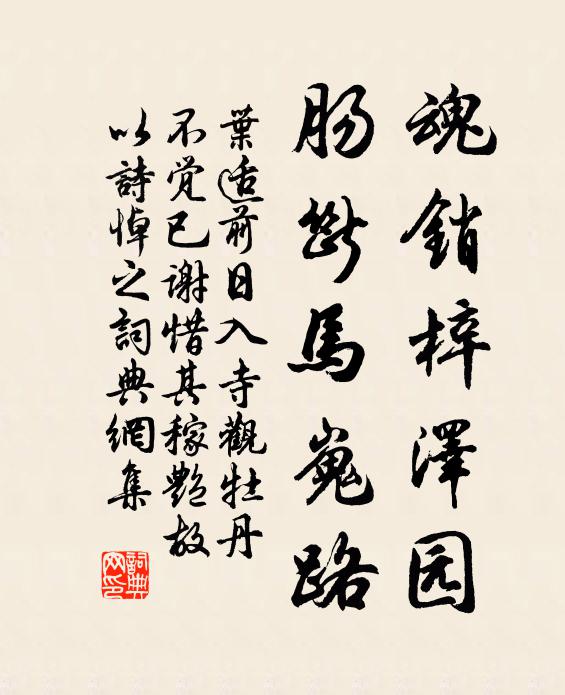 魂銷梓澤园
肠斷馬嵬路
葉適前日入寺觀牡丹
不觉已谢惜其稼艷故
以詩悼之詞典網集
詞典
网印